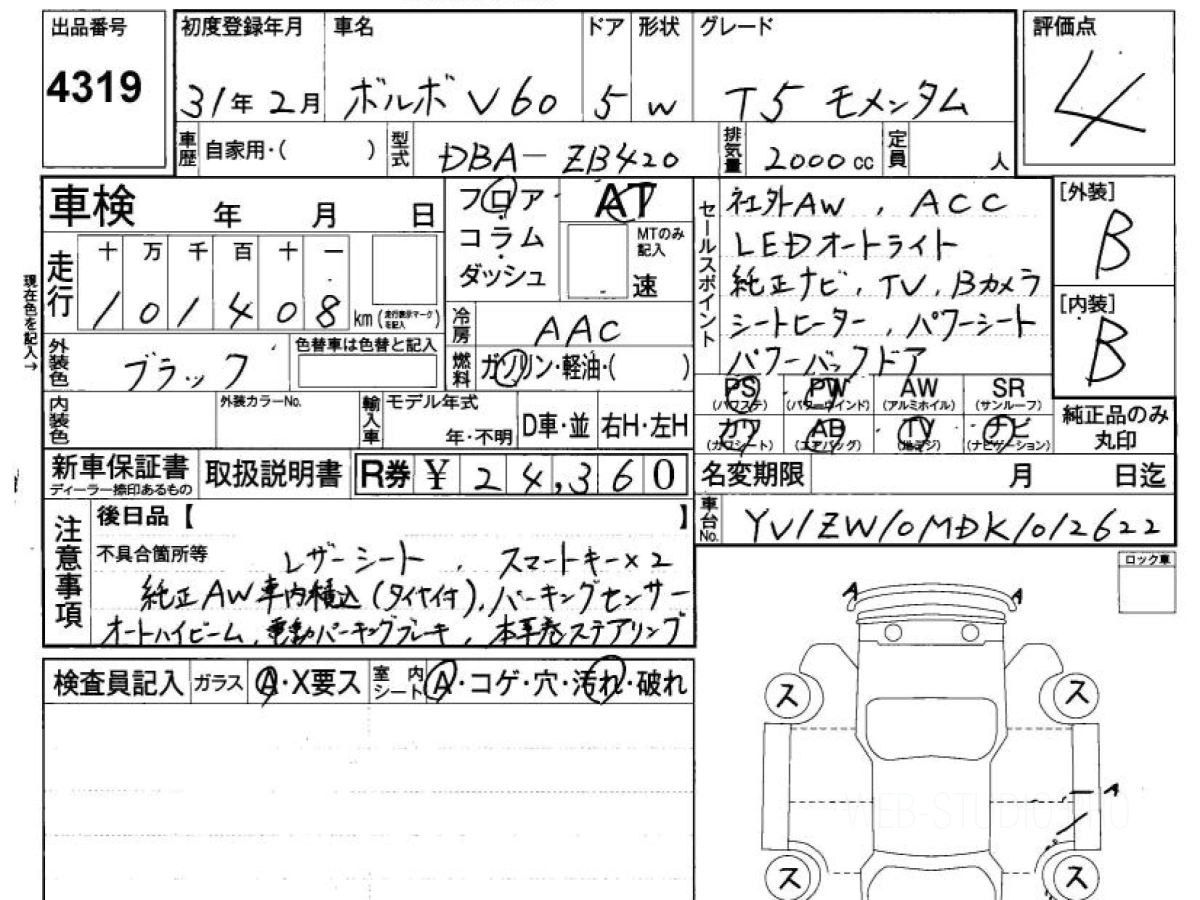 出品番号
4319
初度登録年月 車名 ドア 形状 グレード
31年 2月 ボルボ V60 5 W T5 モメンタム
評価点
4
車歴 自家用・( ) 型式 DBA-ZB420 排気量 2000cc 定員 人
車検 年 月 日
フロア AT
コラム MTのみ記入
ダッシュ 速
セールスポイント 社外AW , ACC
LEDオートライト
純正ナビ, TV, Bカメラ
シートヒーター, パワーシート
パワーバックドア
[外装]
B
[内装]
B
現在色を記入→
走行 十 万 千 百 十 一
1 0 1 4 0 8 km (走行表示マークを記入)
冷房 AAC
外装色 ブラック 色替車は色替と記入
燃料 ガソリン・軽油・( )
PS PW AW SR
(パワステ) (パワーウインド) (アルミホイル) (サンルーフ)
カワ AB TV ナビ
(カワシート) (エアバッグ) (地デジ) (ナビゲーション)
純正品のみ
丸印
内装色 外装カラーNo. 輸入車 モデル年式
年・不明 D車・並 右H・左H
新車保証書 取扱説明書 R券 ¥ 24,360
ディーラー捺印あるもの
名変期限 月 日迄
車台No. YV1ZW10MDK1012622
注意事項 後日品【 】
不具合箇所等 レザーシート , スマートキー×2
純正AW車内積込(タイヤ付), パーキングセンサー
オートハイビーム, 電動パーキングブレーキ, 本革巻ステアリング
ロック車
検査員記入 ガラス A・X要ス 室内シート A・コゲ・穴・汚れ・破れ
A A
ス ス
A
ス ス
WEB-STUDIO.PRO